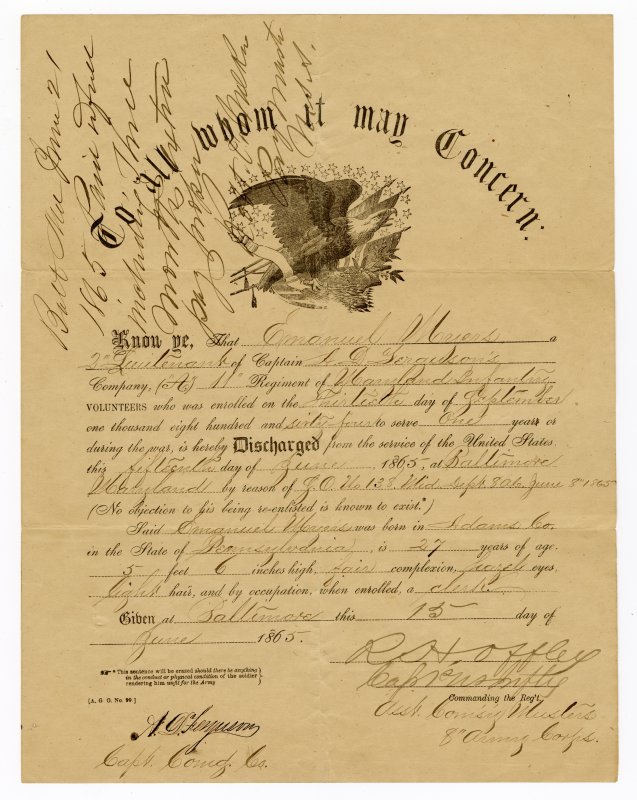 Balt Md June 21
1865 Paid in full
including Three
months extra
pay proper
Paymaster
U.S.A.
To all whom it may Concern:
Know ye, That Emanuel Myers a
2nd Lieutenant of Captain A. D. Ferguson's
Company, (A) 11th Regiment of Maryland Infantry
VOLUNTEERS who was enrolled on the Thirtieth day of September
one thousand eight hundred and sixty four to serve One years or
during the war, is hereby Discharged from the service of the United States.
this fifteenth day of June, 1865, at Baltimore
Maryland by reason of G.O. No 133 Mid. Dept. 8 A.C. June 8" 1865
(No objection to his being re-enlisted is known to exist.*)
Said Emanuel Myers was born in Adams Co.
in the State of Pennsylvania, is 27 years of age.
5 feet 6 inches high, fair complexion, eyes,
light hair, and by occupation, when enrolled, a clerk.
Given at Baltimore this 15 day of
June 1865.
*This sentence will be erased should there be anything
in the conduct or physical condition of the soldier
rendering him unfit for the Army
[A. G. O. No. 99.]
Capt
Commanding the Reg't.
Asst. Comsy Musters
8" Army Corps.
A. D. Ferguson
Capt. Comdg. Co.